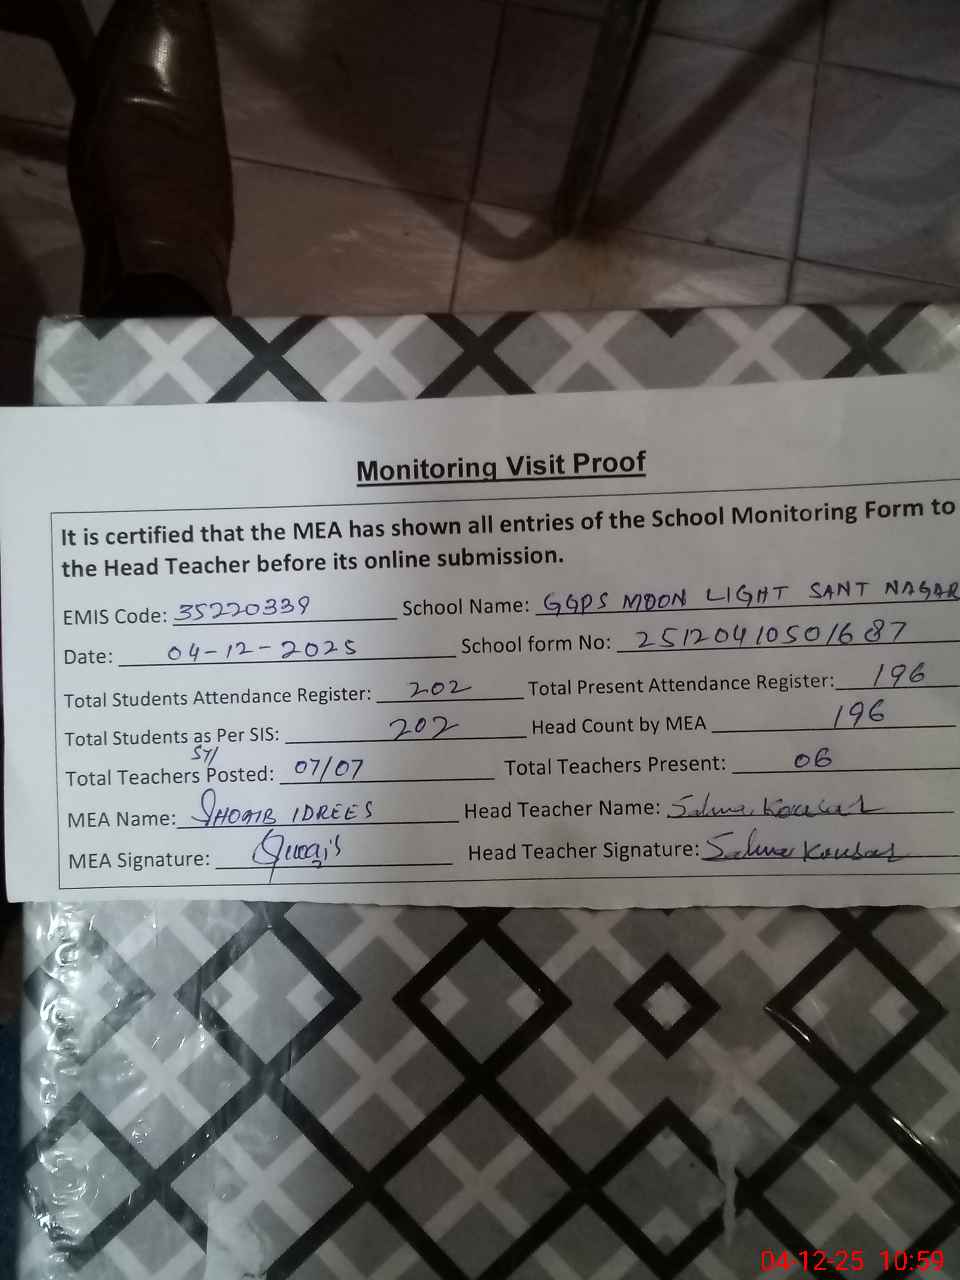 Monitoring Visit Proof
It is certified that the MEA has shown all entries of the School Monitoring Form to
the Head Teacher before its online submission.
EMIS Code: 35220339 School Name: GGPS MOON LIGHT SANT NAGAR
Date: 04-12-2025 School form No: 25120410501687
Total Students Attendance Register: 202 Total Present Attendance Register: 196
Total Students as Per SIS: 202 Head Count by MEA 196
Total Teachers Posted: 07/07 Total Teachers Present: 06
MEA Name: SHOAIB IDREES Head Teacher Name: Salma Kousar
MEA Signature: Head Teacher Signature: Salma Kousar
04-12-25 10:59